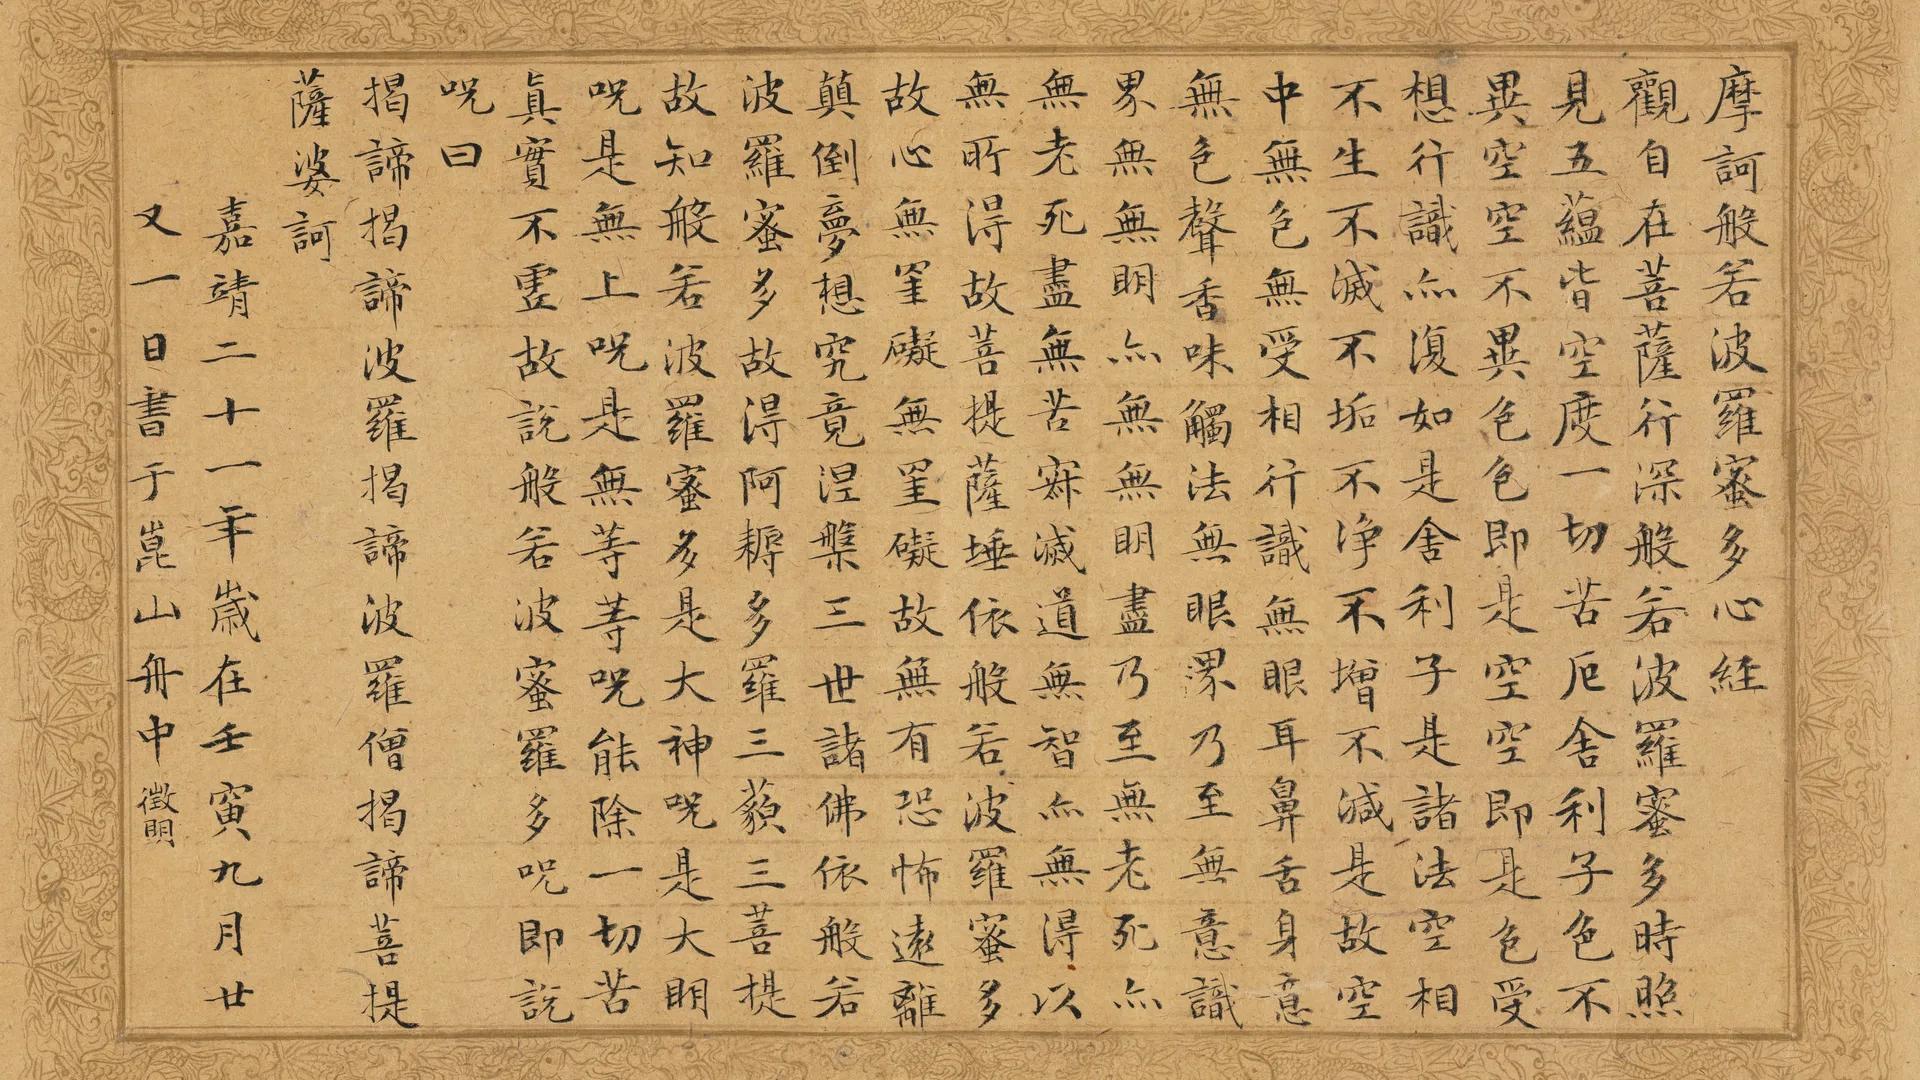 摩訶般若波羅蜜多心経
觀自在菩薩行深般若波羅蜜多時照
見五蘊皆空度一切苦厄舍利子色不
異空空不異色色即是空空即是色受
想行識亦復如是舍利子是諸法空相
不生不滅不垢不淨不增不減是故空
中無色無受相行識無眼耳鼻舌身意
無色聲香味觸法無眼界乃至無意識
界無無明亦無無明盡乃至無老死亦
無老死盡無苦寂滅道無智亦無得以
無所得故菩提薩埵依般若波羅蜜多
故心無罣礙無罣礙故無有恐怖遠離
顛倒夢想究竟涅槃三世諸佛依般若
波羅蜜多故得阿耨多羅三藐三菩提
故知般若波羅蜜多是大神呪是大明
呪是無上呪是無等等呪能除一切苦
真實不虛故說般若波蜜羅多呪即說
呪曰
揭諦揭諦波羅揭諦波羅僧揭諦菩提
薩婆訶
嘉靖二十一年歲在壬寅九月廿
又一日書于崑山舟中徵明